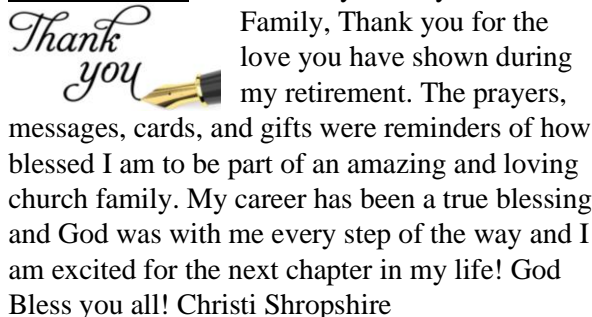 Thank
you
Family, Thank you for the
love you have shown during
my retirement. The prayers,
messages, cards, and gifts were reminders of how
blessed I am to be part of an amazing and loving
church family. My career has been a true blessing
and God was with me every step of the way and I
am excited for the next chapter in my life! God
Bless you all! Christi Shropshire